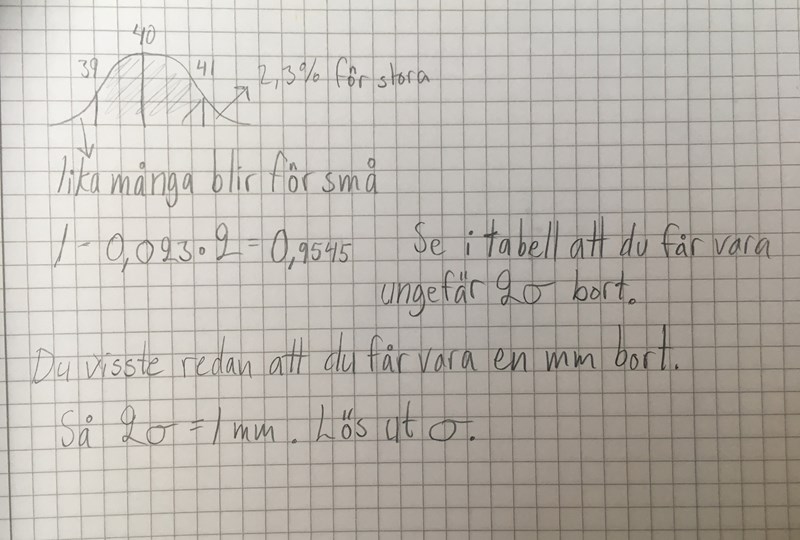 40
39 41 2,3% för stora
lika många blir för små
1 - 0,023 · 2 = 0,9545 Se i tabell att du får vara
ungefär 2σ bort.
Du visste redan att du får vara en mm bort.
Så 2σ = 1 mm. Lös ut σ.